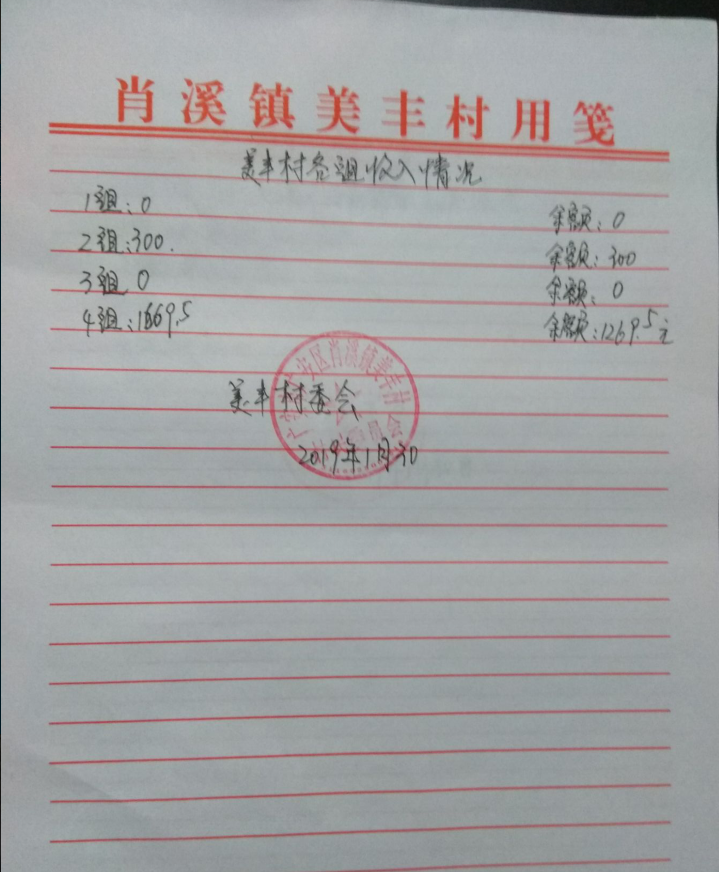 肖溪镇美丰村用笺
美丰村各组收入情况
1组:0 余额:0
2组:300. 余额:300
3组 0 余额:0
4组:1669.5 余额:1269.5元
美丰村委会
2019年1月30
安区肖溪镇美丰村